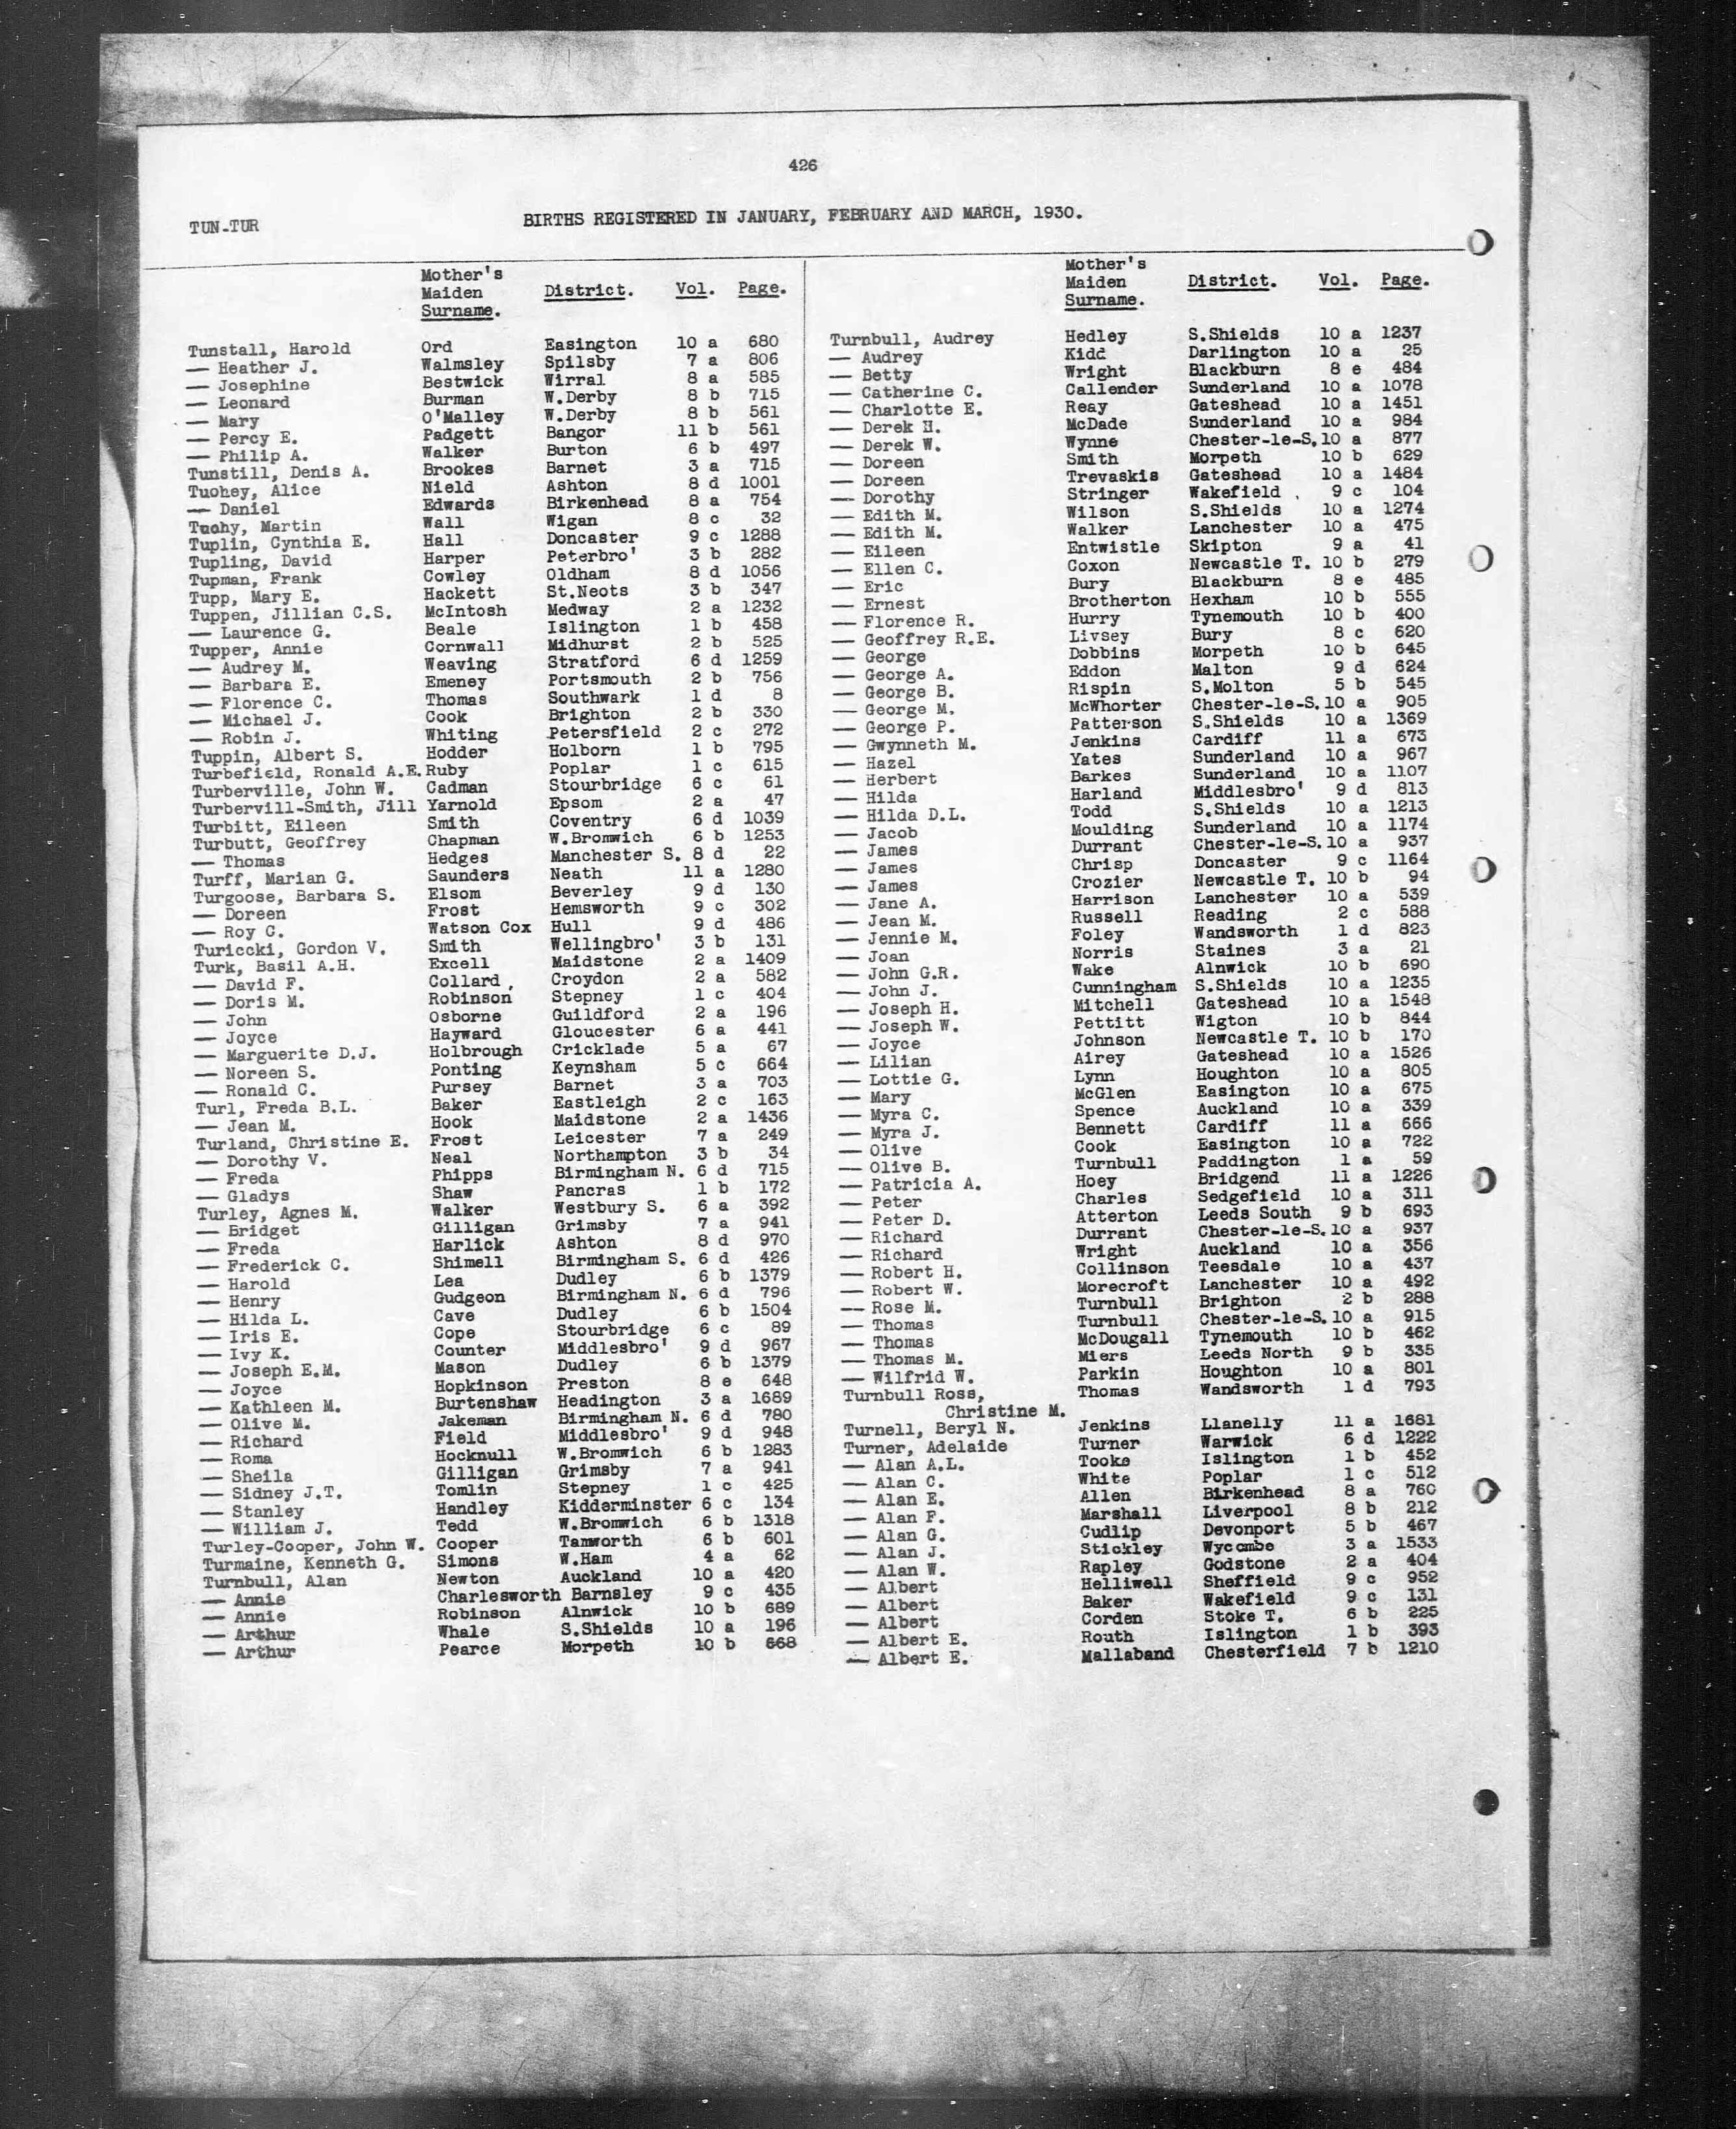 426
TUN-TUR
BIRTHS REGISTERED IN JANUARY, FEBRUARY AND MARCH, 1930.
Mother's
Maiden District. Vol. Page.
Surname.
Tunstall, Harold Ord Easington 10 a 680
— Heather J. Walmsley Spilsby 7 a 806
— Josephine Bestwick Wirral 8 a 585
— Leonard Burman W.Derby 8 b 715
— Mary O'Malley W.Derby 8 b 561
— Percy E. Padgett Bangor 11 b 561
— Philip A. Walker Burton 6 b 497
Tunstill, Denis A. Brookes Barnet 3 a 715
Tuohey, Alice Nield Ashton 8 d 1001
— Daniel Edwards Birkenhead 8 a 754
Tuohy, Martin Wall Wigan 8 c 32
Tuplin, Cynthia E. Hall Doncaster 9 c 1288
Tupling, David Harper Peterbro' 3 b 282
Tupman, Frank Cowley Oldham 8 d 1056
Tupp, Mary E. Hackett St.Neots 3 b 347
Tuppen, Jillian C.S. McIntosh Medway 2 a 1232
— Laurence G. Beale Islington 1 b 458
Tupper, Annie Cornwall Midhurst 2 b 525
— Audrey M. Weaving Stratford 6 d 1259
— Barbara E. Emeney Portsmouth 2 b 756
— Florence C. Thomas Southwark 1 d 8
— Michael J. Cook Brighton 2 b 330
— Robin J. Whiting Petersfield 2 c 272
Tuppin, Albert S. Hodder Holborn 1 b 795
Turbefield, Ronald A.E. Ruby Poplar 1 c 615
Turberville, John W. Cadman Stourbridge 6 c 61
Turbervill-Smith, Jill Yarnold Epsom 2 a 47
Turbitt, Eileen Smith Coventry 6 d 1039
Turbutt, Geoffrey Chapman W.Bromwich 6 b 1253
— Thomas Hedges Manchester S. 8 d 22
Turff, Marian G. Saunders Neath 11 a 1280
Turgoose, Barbara S. Elsom Beverley 9 d 130
— Doreen Frost Hemsworth 9 c 302
— Roy C. Watson Cox Hull 9 d 486
Turiccki, Gordon V. Smith Wellingbro' 3 b 131
Turk, Basil A.H. Excell Maidstone 2 a 1409
— David F. Collard, Croydon 2 a 582
— Doris M. Robinson Stepney 1 c 404
— John Osborne Guildford 2 a 196
— Joyce Hayward Gloucester 6 a 441
— Marguerite D.J. Holbrough Cricklade 5 a 67
— Noreen S. Ponting Keynsham 5 c 664
— Ronald C. Pursey Barnet 3 a 703
Turl, Freda B.L. Baker Eastleigh 2 c 163
— Jean M. Hook Maidstone 2 a 1436
Turland, Christine E. Frost Leicester 7 a 249
— Dorothy V. Neal Northampton 3 b 34
— Freda Phipps Birmingham N. 6 d 715
— Gladys Shaw Pancras 1 b 172
Turley, Agnes M. Walker Westbury S. 6 a 392
— Bridget Gilligan Grimsby 7 a 941
— Freda Harlick Ashton 8 d 970
— Frederick C. Shimell Birmingham S. 6 d 426
— Harold Lea Dudley 6 b 1379
— Henry Gudgeon Birmingham N. 6 d 796
— Hilda L. Cave Dudley 6 b 1504
— Iris E. Cope Stourbridge 6 c 89
— Ivy K. Counter Middlesbro' 9 d 967
— Joseph E.M. Mason Dudley 6 b 1379
— Joyce Hopkinson Preston 8 e 648
— Kathleen M. Burtenshaw Headington 3 a 1689
— Olive M. Jakeman Birmingham N. 6 d 780
— Richard Field Middlesbro' 9 d 948
— Roma Hocknull W.Bromwich 6 b 1283
— Sheila Gilligan Grimsby 7 a 941
— Sidney J.T. Tomlin Stepney 1 c 425
— Stanley Handley Kidderminster 6 c 134
— William J. Tedd W.Bromwich 6 b 1318
Turley-Cooper, John W. Cooper Tamworth 6 b 601
Turmaine, Kenneth G. Simons W.Ham 4 a 62
Turnbull, Alan Newton Auckland 10 a 420
— Annie Charlesworth Barnsley 9 c 435
— Annie Robinson Alnwick 10 b 689
— Arthur Whale S.Shields 10 a 196
— Arthur Pearce Morpeth 10 b 668
Mother's
Maiden District. Vol. Page.
Surname.
Turnbull, Audrey Hedley S.Shields 10 a 1237
— Audrey Kidd Darlington 10 a 25
— Betty Wright Blackburn 8 e 484
— Catherine C. Callender Sunderland 10 a 1078
— Charlotte E. Reay Gateshead 10 a 1451
— Derek H. McDade Sunderland 10 a 984
— Derek W. Wynne Chester-le-S. 10 a 877
— Doreen Smith Morpeth 10 b 629
— Doreen Trevaskis Gateshead 10 a 1484
— Dorothy Stringer Wakefield 9 c 104
— Edith M. Wilson S.Shields 10 a 1274
— Edith M. Walker Lanchester 10 a 475
— Eileen Entwistle Skipton 9 a 41
— Ellen C. Coxon Newcastle T. 10 b 279
— Eric Bury Blackburn 8 e 485
— Ernest Brotherton Hexham 10 b 555
— Florence R. Hurry Tynemouth 10 b 400
— Geoffrey R.E. Livsey Bury 8 c 620
— George Dobbins Morpeth 10 b 645
— George A. Eddon Malton 9 d 624
— George B. Rispin S.Molton 5 b 545
— George M. McWhorter Chester-le-S. 10 a 905
— George P. Patterson S.Shields 10 a 1369
— Gwynneth M. Jenkins Cardiff 11 a 673
— Hazel Yates Sunderland 10 a 967
— Herbert Barkes Sunderland 10 a 1107
— Hilda Harland Middlesbro' 9 d 813
— Hilda D.L. Todd S.Shields 10 a 1213
— Jacob Moulding Sunderland 10 a 1174
— James Durrant Chester-le-S. 10 a 937
— James Chrisp Doncaster 9 c 1164
— James Crozier Newcastle T. 10 b 94
— Jane A. Harrison Lanchester 10 a 539
— Jean M. Russell Reading 2 c 588
— Jennie M. Foley Wandsworth 1 d 823
— Joan Norris Staines 3 a 21
— John G.R. Wake Alnwick 10 b 690
— John J. Cunningham S.Shields 10 a 1235
— Joseph H. Mitchell Gateshead 10 a 1548
— Joseph W. Pettitt Wigton 10 b 844
— Joyce Johnson Newcastle T. 10 b 170
— Lilian Airey Gateshead 10 a 1526
— Lottie G. Lynn Houghton 10 a 805
— Mary McGlen Easington 10 a 675
— Myra C. Spence Auckland 10 a 339
— Myra J. Bennett Cardiff 11 a 666
— Olive Cook Easington 10 a 722
— Olive B. Turnbull Paddington 1 a 59
— Patricia A. Hoey Bridgend 11 a 1226
— Peter Charles Sedgefield 10 a 311
— Peter D. Atterton Leeds South 9 b 693
— Richard Durrant Chester-le-S. 10 a 937
— Richard Wright Auckland 10 a 356
— Robert H. Collinson Teesdale 10 a 437
— Robert W. Morecroft Lanchester 10 a 492
— Rose M. Turnbull Brighton 2 b 288
— Thomas Turnbull Chester-le-S. 10 a 915
— Thomas McDougall Tynemouth 10 b 462
— Thomas M. Miers Leeds North 9 b 335
— Wilfrid W. Parkin Houghton 10 a 801
Turnbull Ross, Thomas Wandsworth 1 d 793
Christine M.
Turnell, Beryl N. Jenkins Llanelly 11 a 1681
Turner, Adelaide Turner Warwick 6 d 1222
— Alan A.L. Tooke Islington 1 b 452
— Alan C. White Poplar 1 c 512
— Alan E. Allen Birkenhead 8 a 760
— Alan F. Marshall Liverpool 8 b 212
— Alan G. Cudlip Devonport 5 b 467
— Alan J. Stickley Wycombe 3 a 1533
— Alan W. Rapley Godstone 2 a 404
— Albert Helliwell Sheffield 9 c 952
— Albert Baker Wakefield 9 c 131
— Albert Corden Stoke T. 6 b 225
— Albert E. Routh Islington 1 b 393
— Albert E. Mallaband Chesterfield 7 b 1210